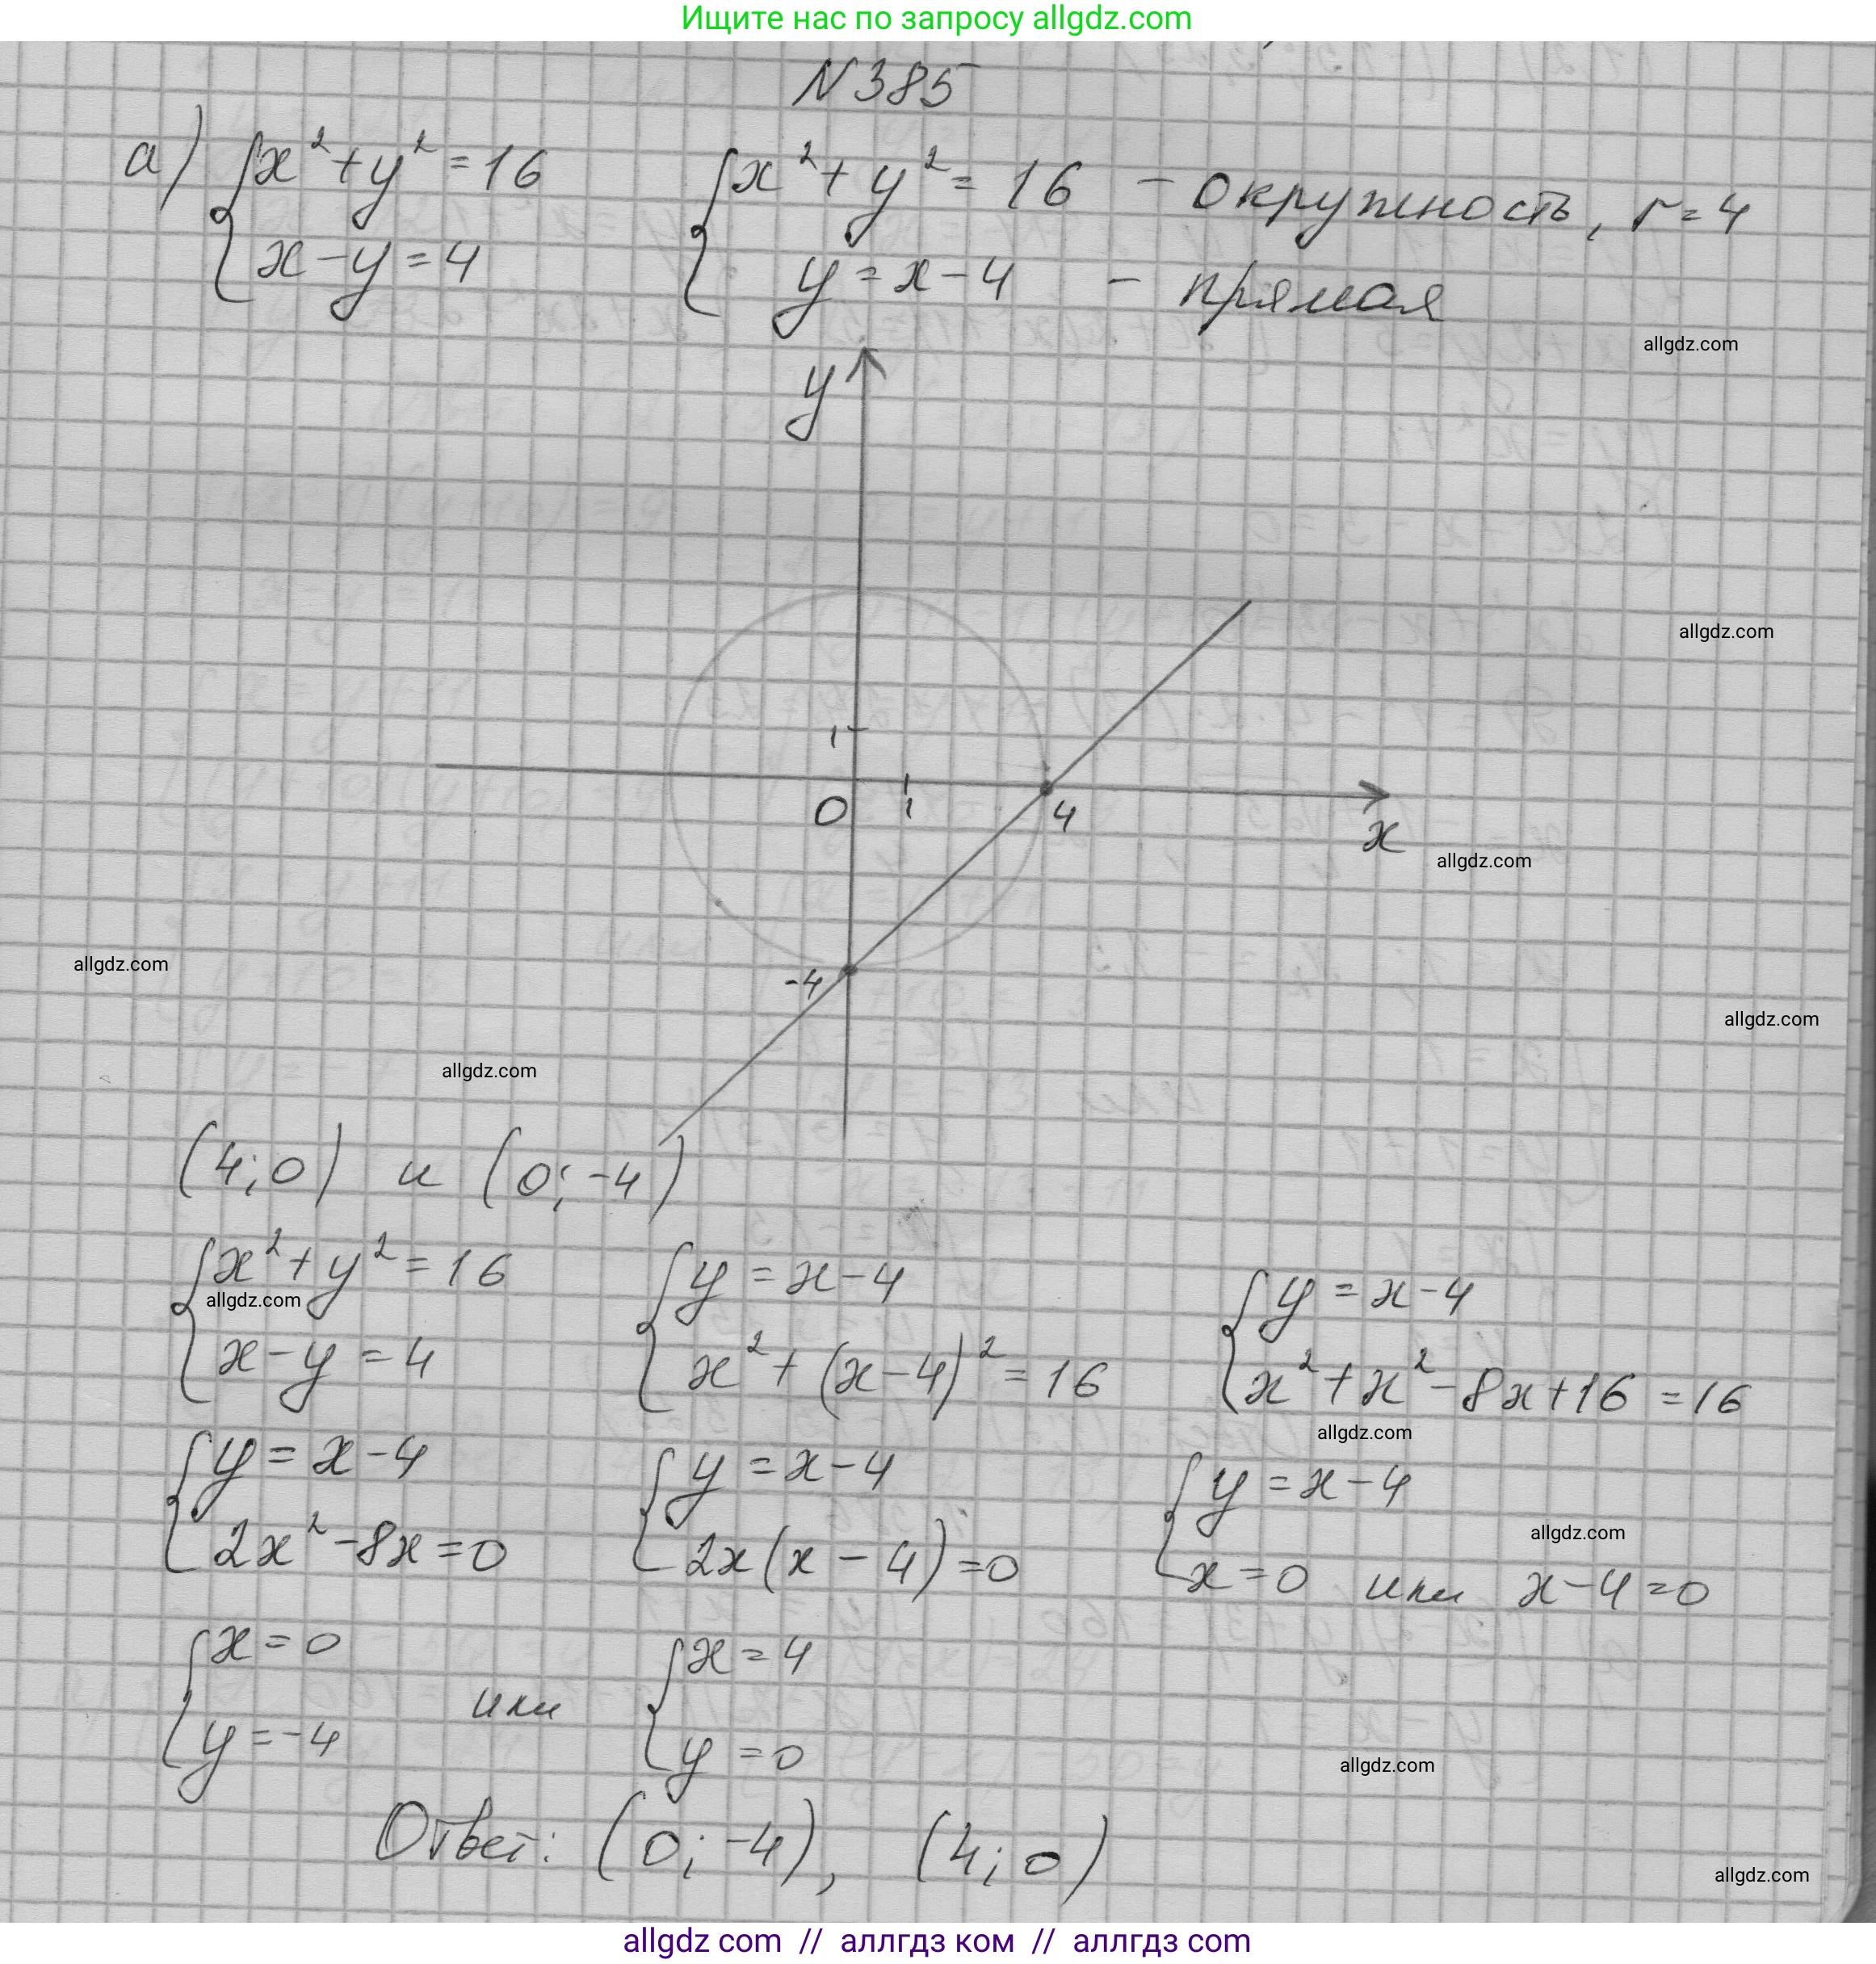 Ищите нас по запросу allgdz.com
N385
а) {x²+y²=16   {x²+y²=16 – окружность, r=4
x−y=4   y=x−4 – прямая
allgdz.com
y
allgdz.com
1
0 1 4
x
allgdz.com
allgdz.com
-4
allgdz.com
allgdz.com
(4;0) и (0;-4)
{x²+y²=16   {y=x−4   {y=x−4
allgdz.com
x−y=4   x²+(x−4)²=16   x²+x²−8x+16=16
allgdz.com
{y=x−4   {y=x−4   {y=x−4
allgdz.com
2x²−8x=0   2x(x−4)=0   x=0 или x−4=0
{x=0 или {x=4
y=−4   y=0
allgdz.com
Ответ: (0;−4), (4;0)
allgdz.com
allgdz com // аллгдз ком // аллгдз com